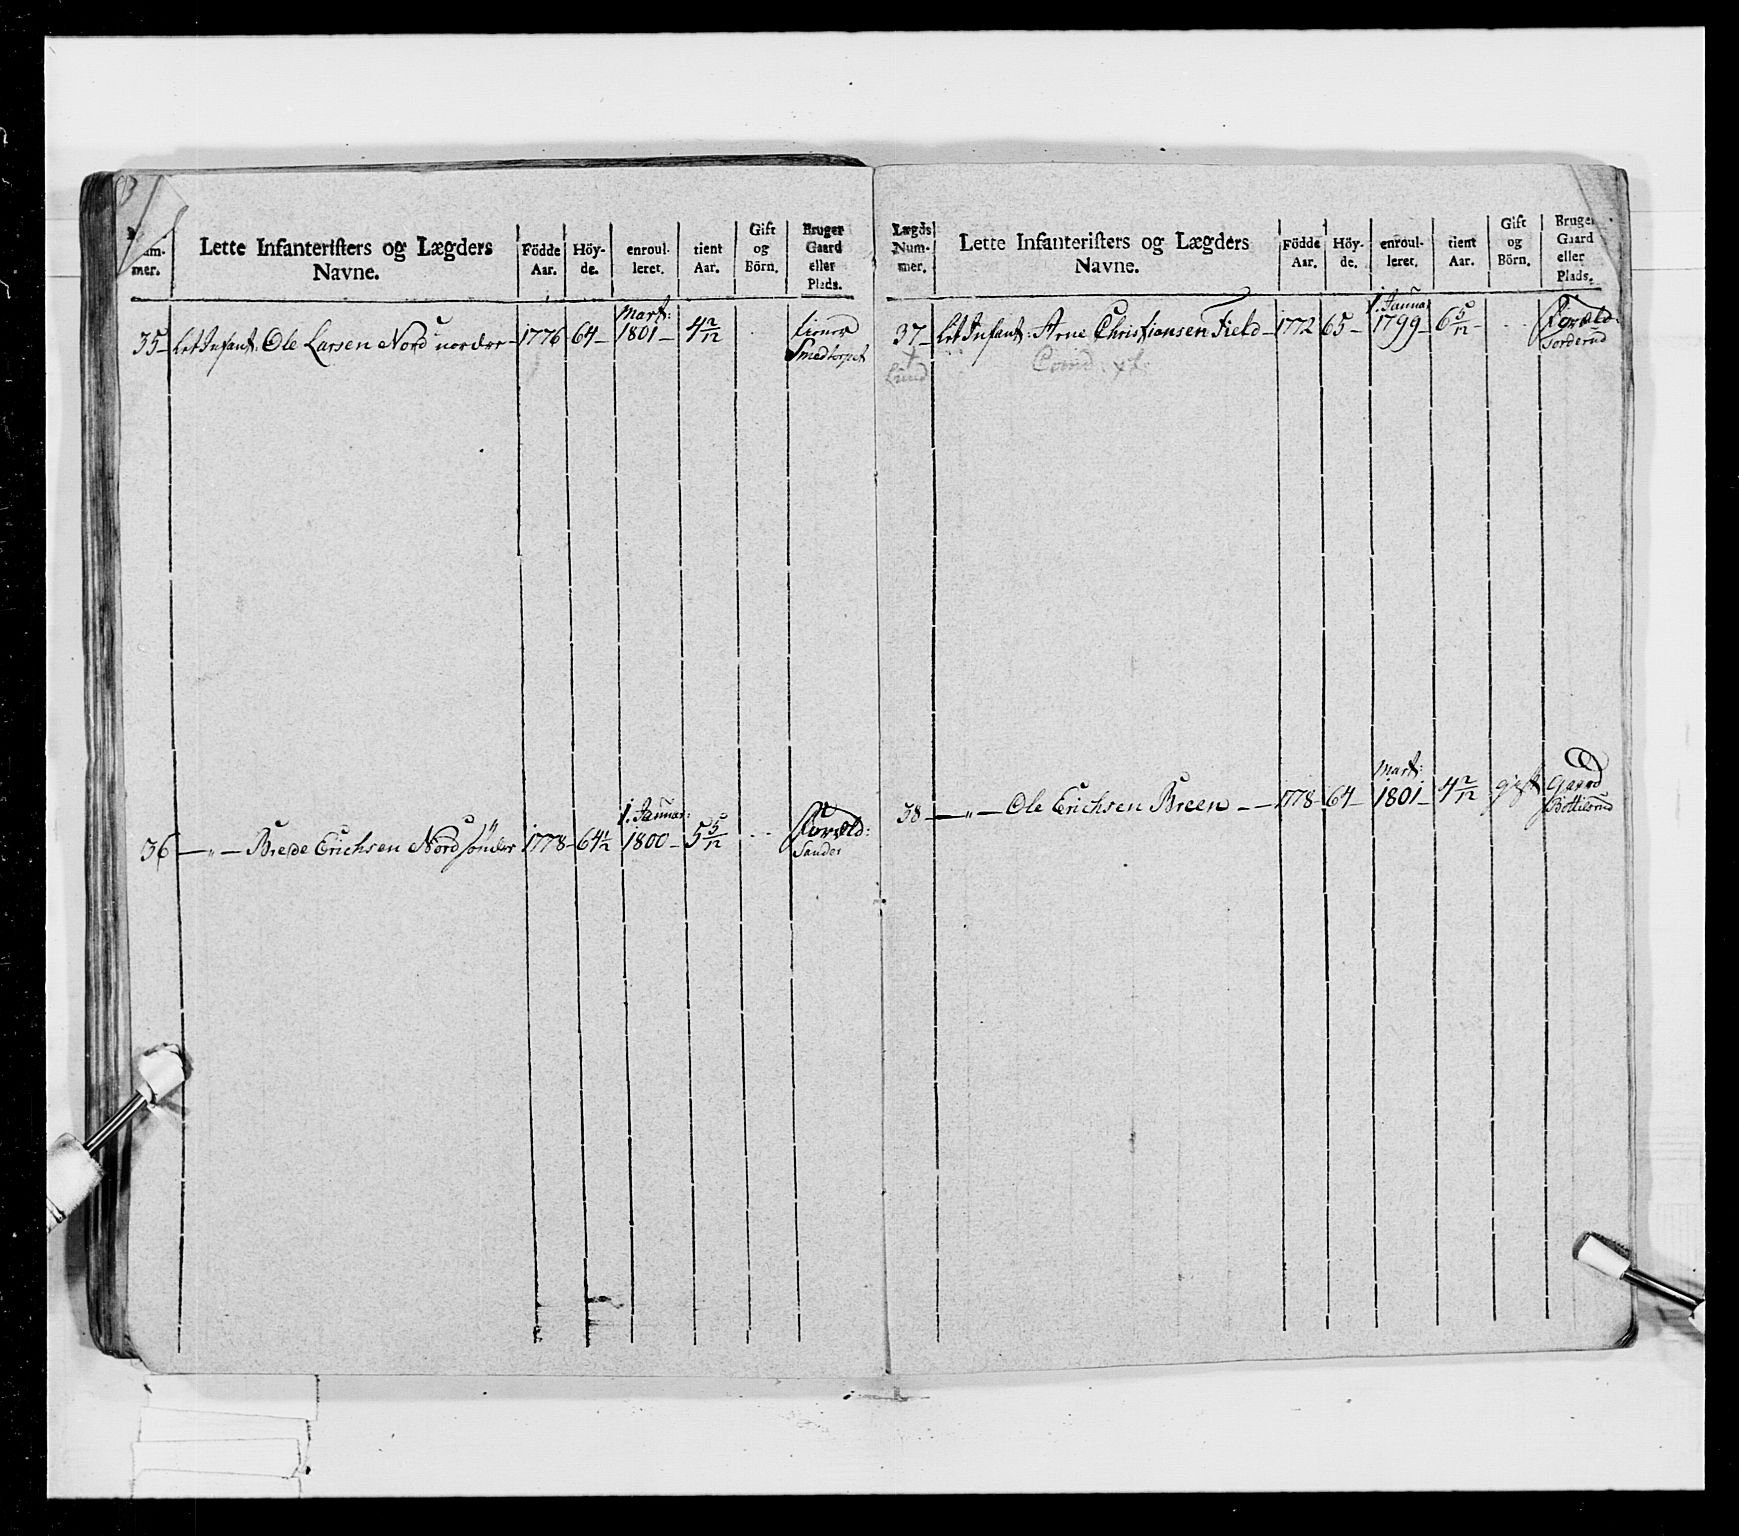 mer.
Lette Infanteristers og Lægders
Navne.
Födde
Aar.
Höy-
de.
enroul-
leret.
tient
Aar.
Gift
og
Börn.
Bruger
Gaard
eller
Plads.
35 - Let Infant: Ole Larsen Nord nordre - 1776 64 - Mart: 1801 - 4 2/12 Smedtorpet
36 - " - Brede Erichsen Nord søndre 1778 - 64 1/2 1. Januar: 1800 - 5 5/12 Foræld: Sander
Lægds
Num-
mer.
Lette Infanteristers og Lægders
Navne.
Födde
Aar.
Höy-
de.
enroul-
leret.
tient
Aar.
Gift
og
Börn.
Bruger
Gaard
eller
Plads.
37 - Let Infant: Arne Christiansen Field - 1772 65 - 1. Janua 1799 - 6 5/12 - Foræld: Torderud
Lund
38 - " - Ole Erichsen Breen - - 1778 - 64 - Mart: 1801 - 4 2/12 gift Gaard